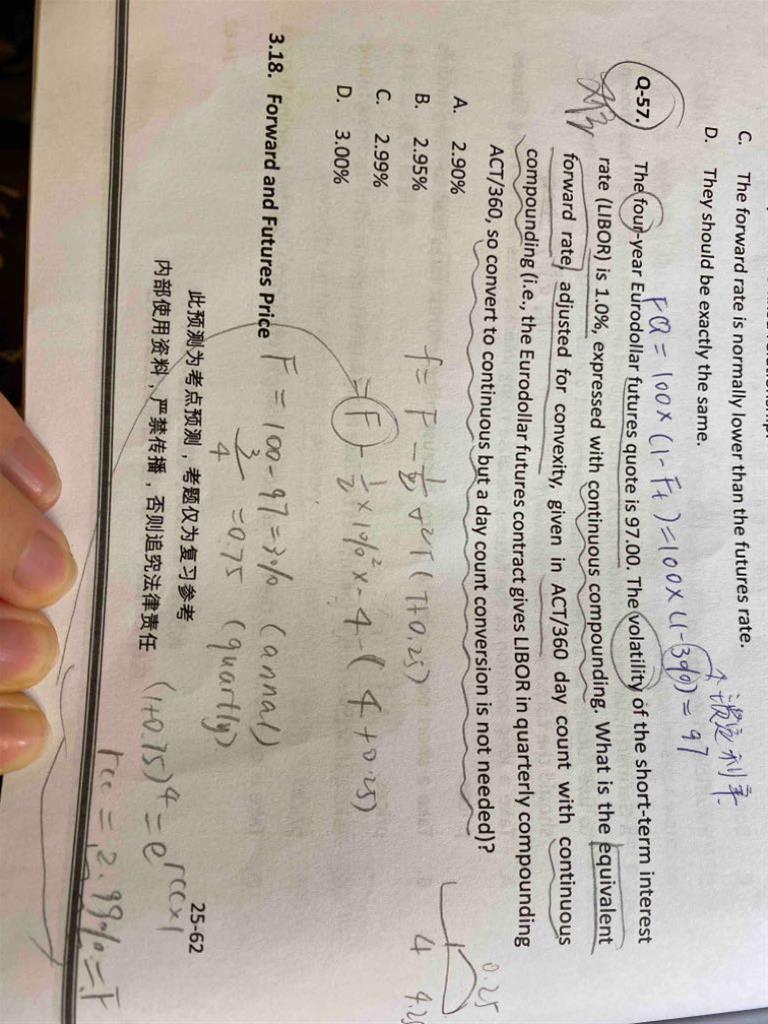 C. The forward rate is normally lower than the futures rate.
D. They should be exactly the same.
FQ = 100×(1-Ft)=100×(1-3%) = 97
Q-57. The four-year Eurodollar futures quote is 97.00. The volatility of the short-term interest
rate (LIBOR) is 1.0%, expressed with continuous compounding. What is the equivalent
forward rate, adjusted for convexity, given in ACT/360 day count with continuous
compounding (i.e., the Eurodollar futures contract gives LIBOR in quarterly compounding
ACT/360, so convert to continuous but a day count conversion is not needed)?
A. 2.90%
B. 2.95%
C. 2.99%
D. 3.00%
0.25
4 4.25
f = F - 1/2 σ²T(T+0.25)
= F - 1/2 × 1%² × 4 (4+0.25)
3.18. Forward and Futures Price
F = 100-97=3% (annal)
3/4 = 0.75 (quartly)
(1+0.75)⁴ = e^rcc×1
rcc = 2.99% = F
此预测为考点预测，考题仅为复习参考
内部使用资料，严禁传播，否则追究法律责任
25-62